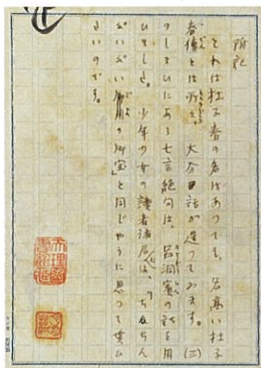 附記
これは杜子春の名はあつても、名高い杜子
春傳とは大分話が違つてゐます。(三)
のしまひにある七言絶句は、呂洞賓の詩を用
ひました。少年少女の讀者諸君は、「ちちん
ぷいぷい御用の御宝」と同じやうに思つて貰ひ
たいのです。